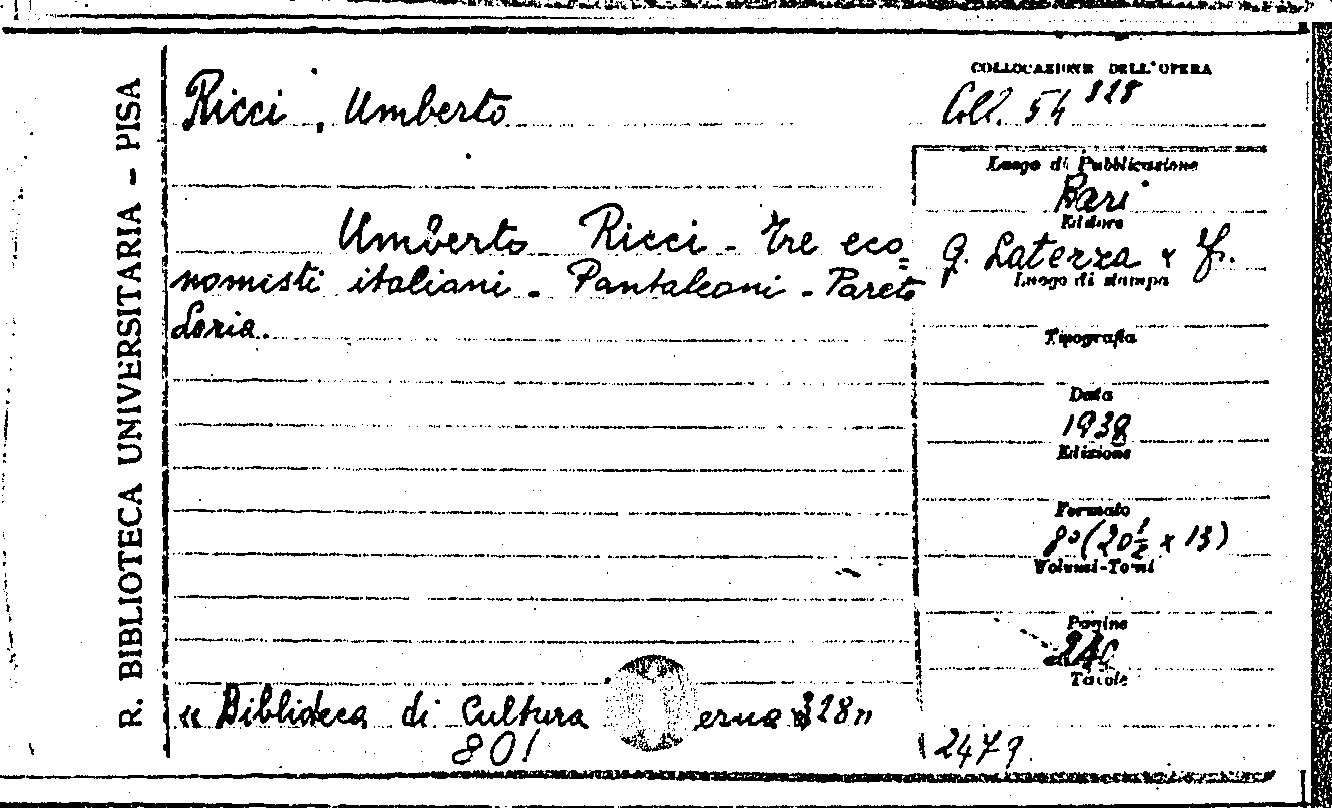 R. BIBLIOTECA UNIVERSITARIA - PISA
Ricci, Umberto
Umberto Ricci - Tre eco=
nomisti italiani - Pantaleoni - Pareto
Loria.
« Biblioteca di Cultura erna 328n
801
COLLOCAZIONE DELL'OPERA
Coll. 54 328
Luogo di Pubblicazione
Bari
Editore
G. Laterza & F.
Luogo di stampa
Tipografia
Data
1938
Edizione
Formato
8° (20 1/2 x 13)
Volumi-Tomi
Pagine
240
Tavole
2479.